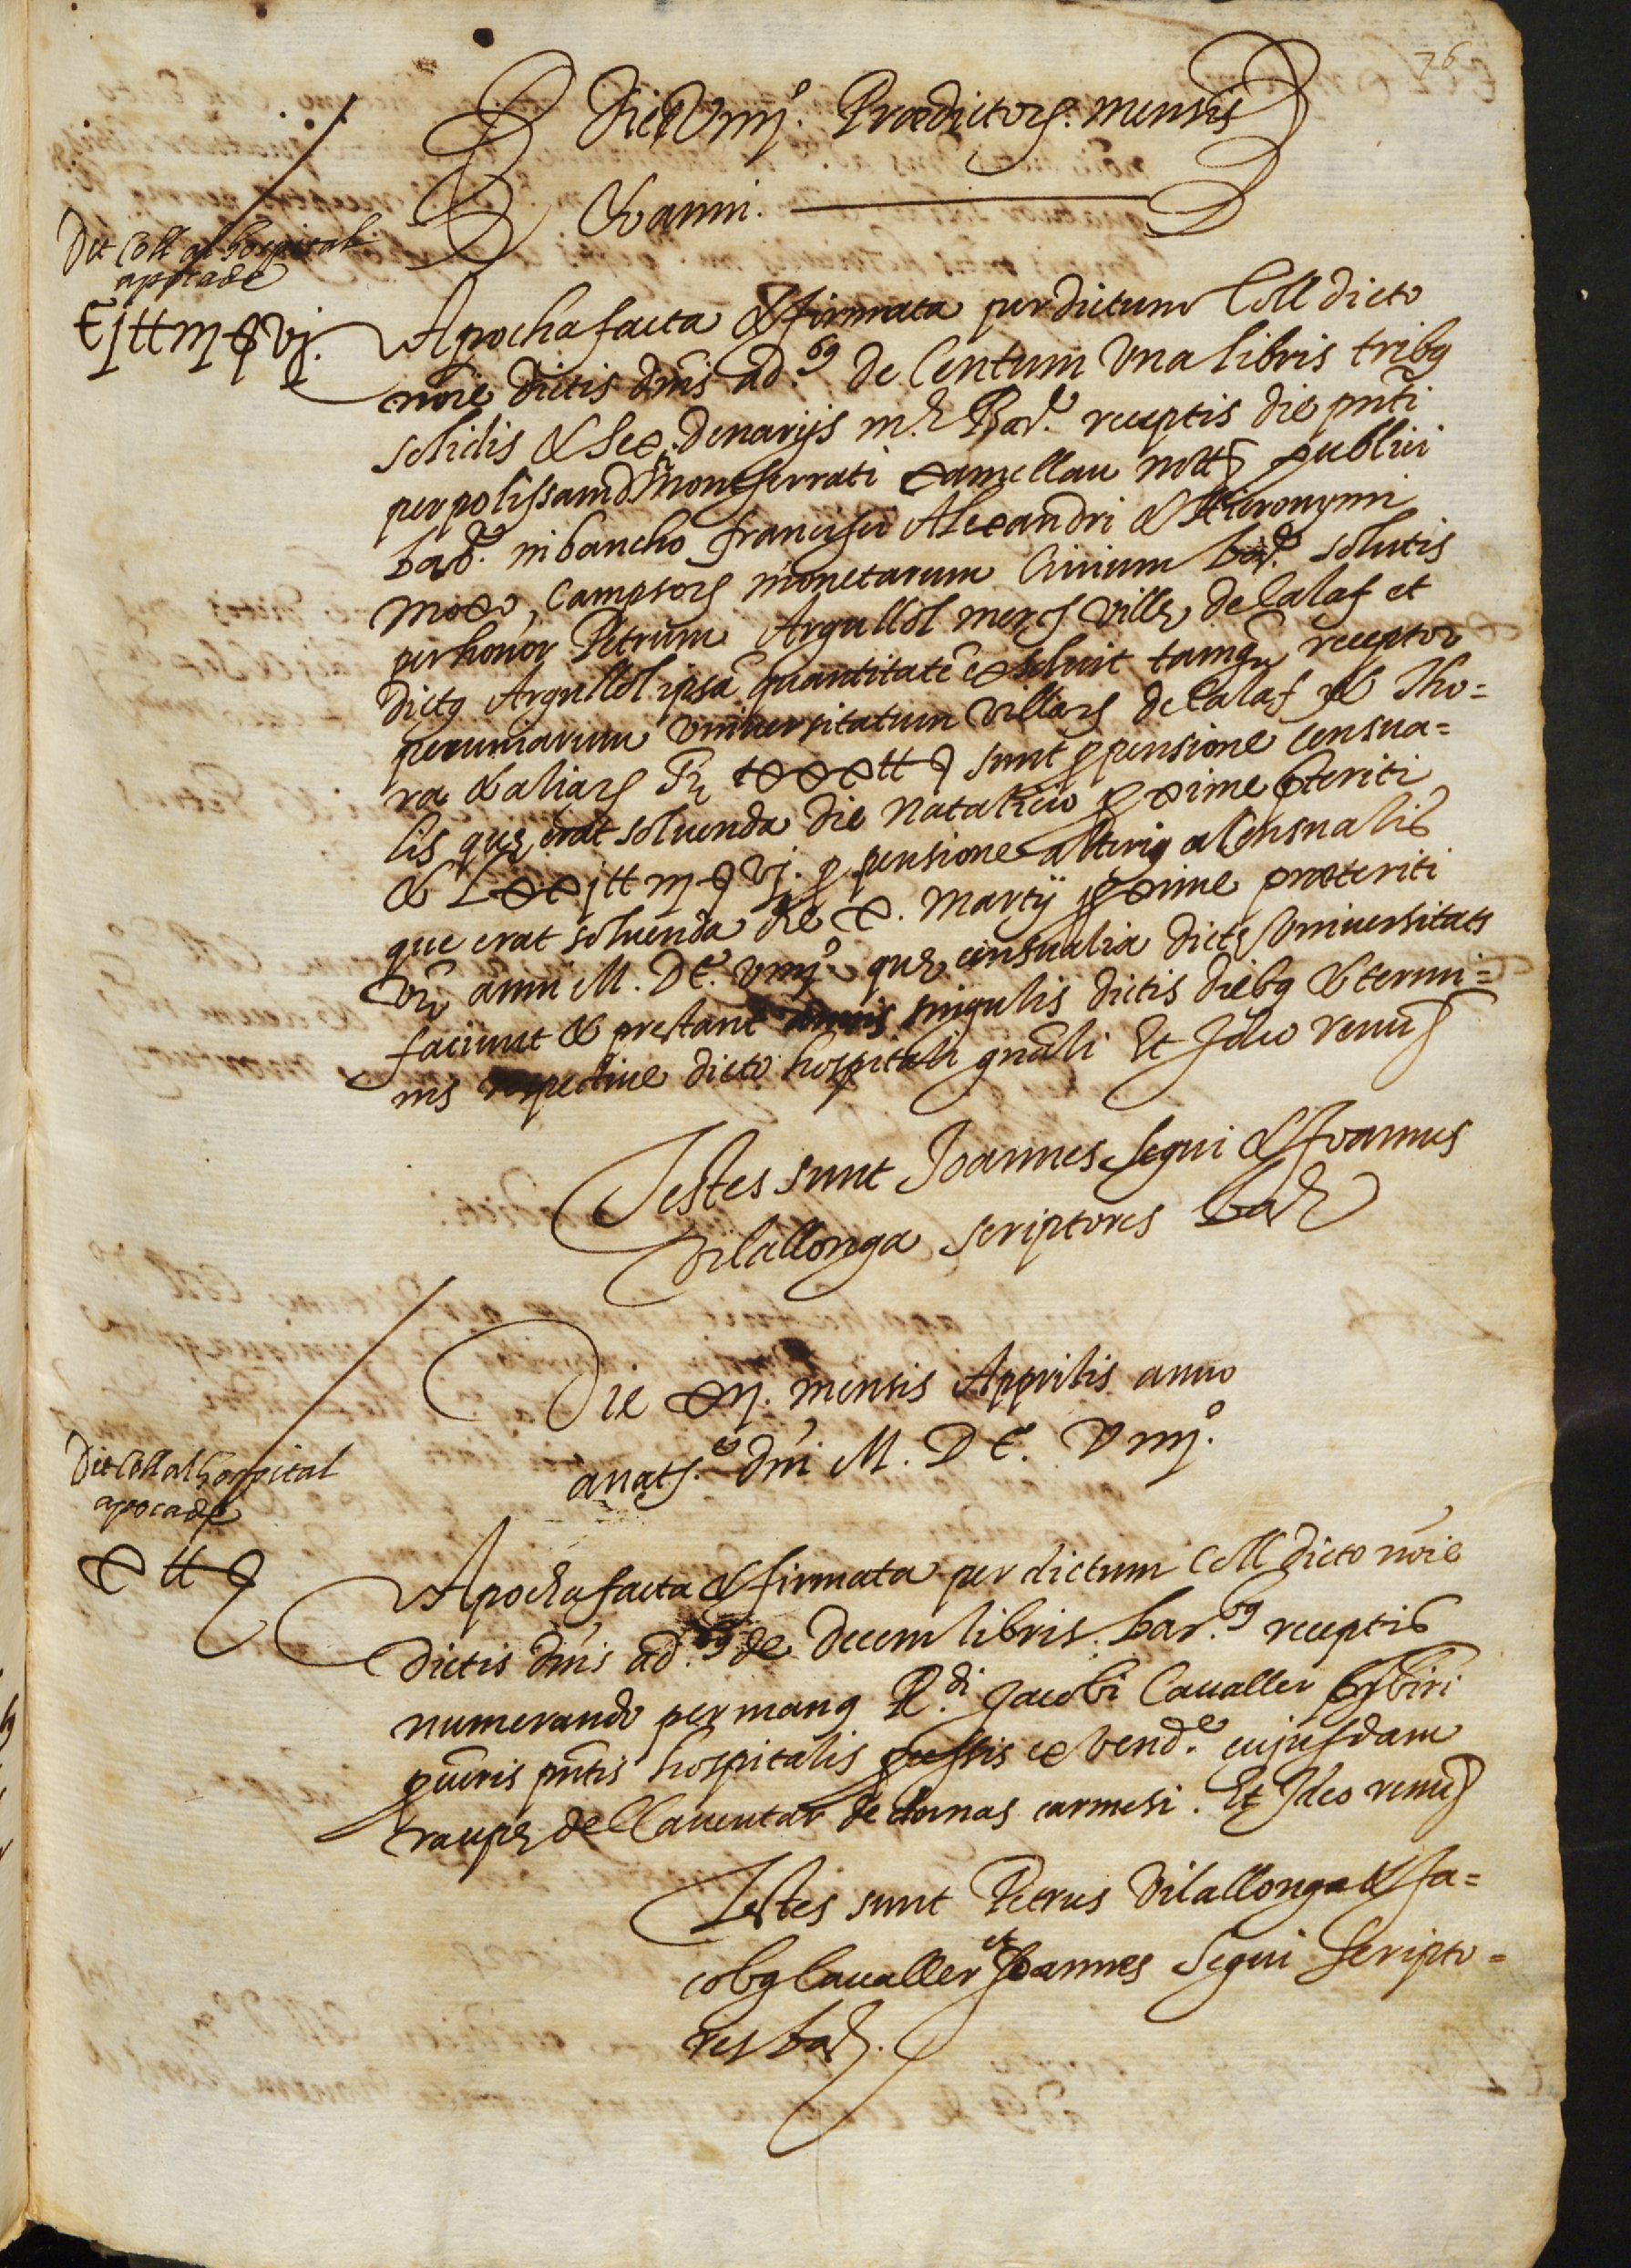 76
Die Viiij.º Prædictorꝝ. mensis
& anni.
Dit Coll al hospital
apocade
C j ₶ iij ꝭ vj.
Apocha facta & firmata per dictum Coll dicto
noīe dictis dn̄is ad.ꝰ de Centum Vna libris tribꝰ
solidis & Sex Denarijs m. Bar.e receptis die pn̄ti
per polissam d. Montserrati Xamellau notꝭ publici
bar.e in bancho francisci Alexandri & Hieronymi
Moxo, campsorꝝ monetarum Ciuium bar.e solutis
per honor Petrum Argullol mercꝭ villę de Calaf et
dictꝰ Argullol ipsā quantitatē exsoluit tamꝗ receptor
pecuniarum vniuersitatum villarꝝ de Calaf & Tho=
ra & aliarꝝ xxx ₶ ꝭ sunt ꝓ pensione Censua=
lis quę erat soluenda die natalicio ꝓxime pteriti
& Lxxj ₶ iij ꝭ vj. ꝓ pensione alteriꝰ Censualis
que erat soluenda die x. Martij ꝓxime præteriti
anni M. DC. Viiij.º quę censualia dictę Vniuersitats
faciunt & prestant annis singulis dictis diebꝰ & termi=
nis respectiue dicto hospitali gnāli Et Ideo renuꝭ
Testes sunt Joannes Segui & Joannes
Vilallonga scriptores barꝭ
Die xij. mensis Apprilis anno
anatꝭ. dn̄i M. DC. Viiij.º
Dit Coll al hospital
apocade
x ₶ ꝭ
Apocha facta & firmata per dictum Coll dicto noīe
dictis dn̄is ad.ꝰ de Decem libris. bar.bꝰ receptis
numerando per manꝰ R.di Jacobi Caualler pr̄sbiri
pn̄tis hospitalis ex vend.e cujusdam
raupę de Llauentar de domas carmesi. Et Ideo renuꝭ
Testes sunt Petrus Vilallonga & Ja=
cobꝰ Caualler et Joannes Segui Scripto=
res barꝭ.